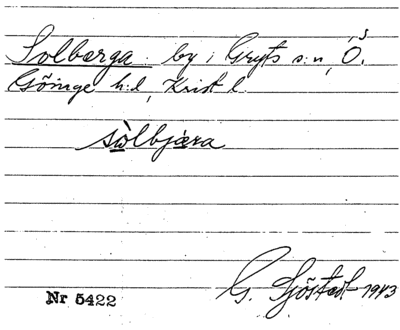 Solberga by i Gryts s:n, Ö.
Göinge h:d, Krist l.
sòlbjæra
G. Sjöstedt 1943
Nr 5422